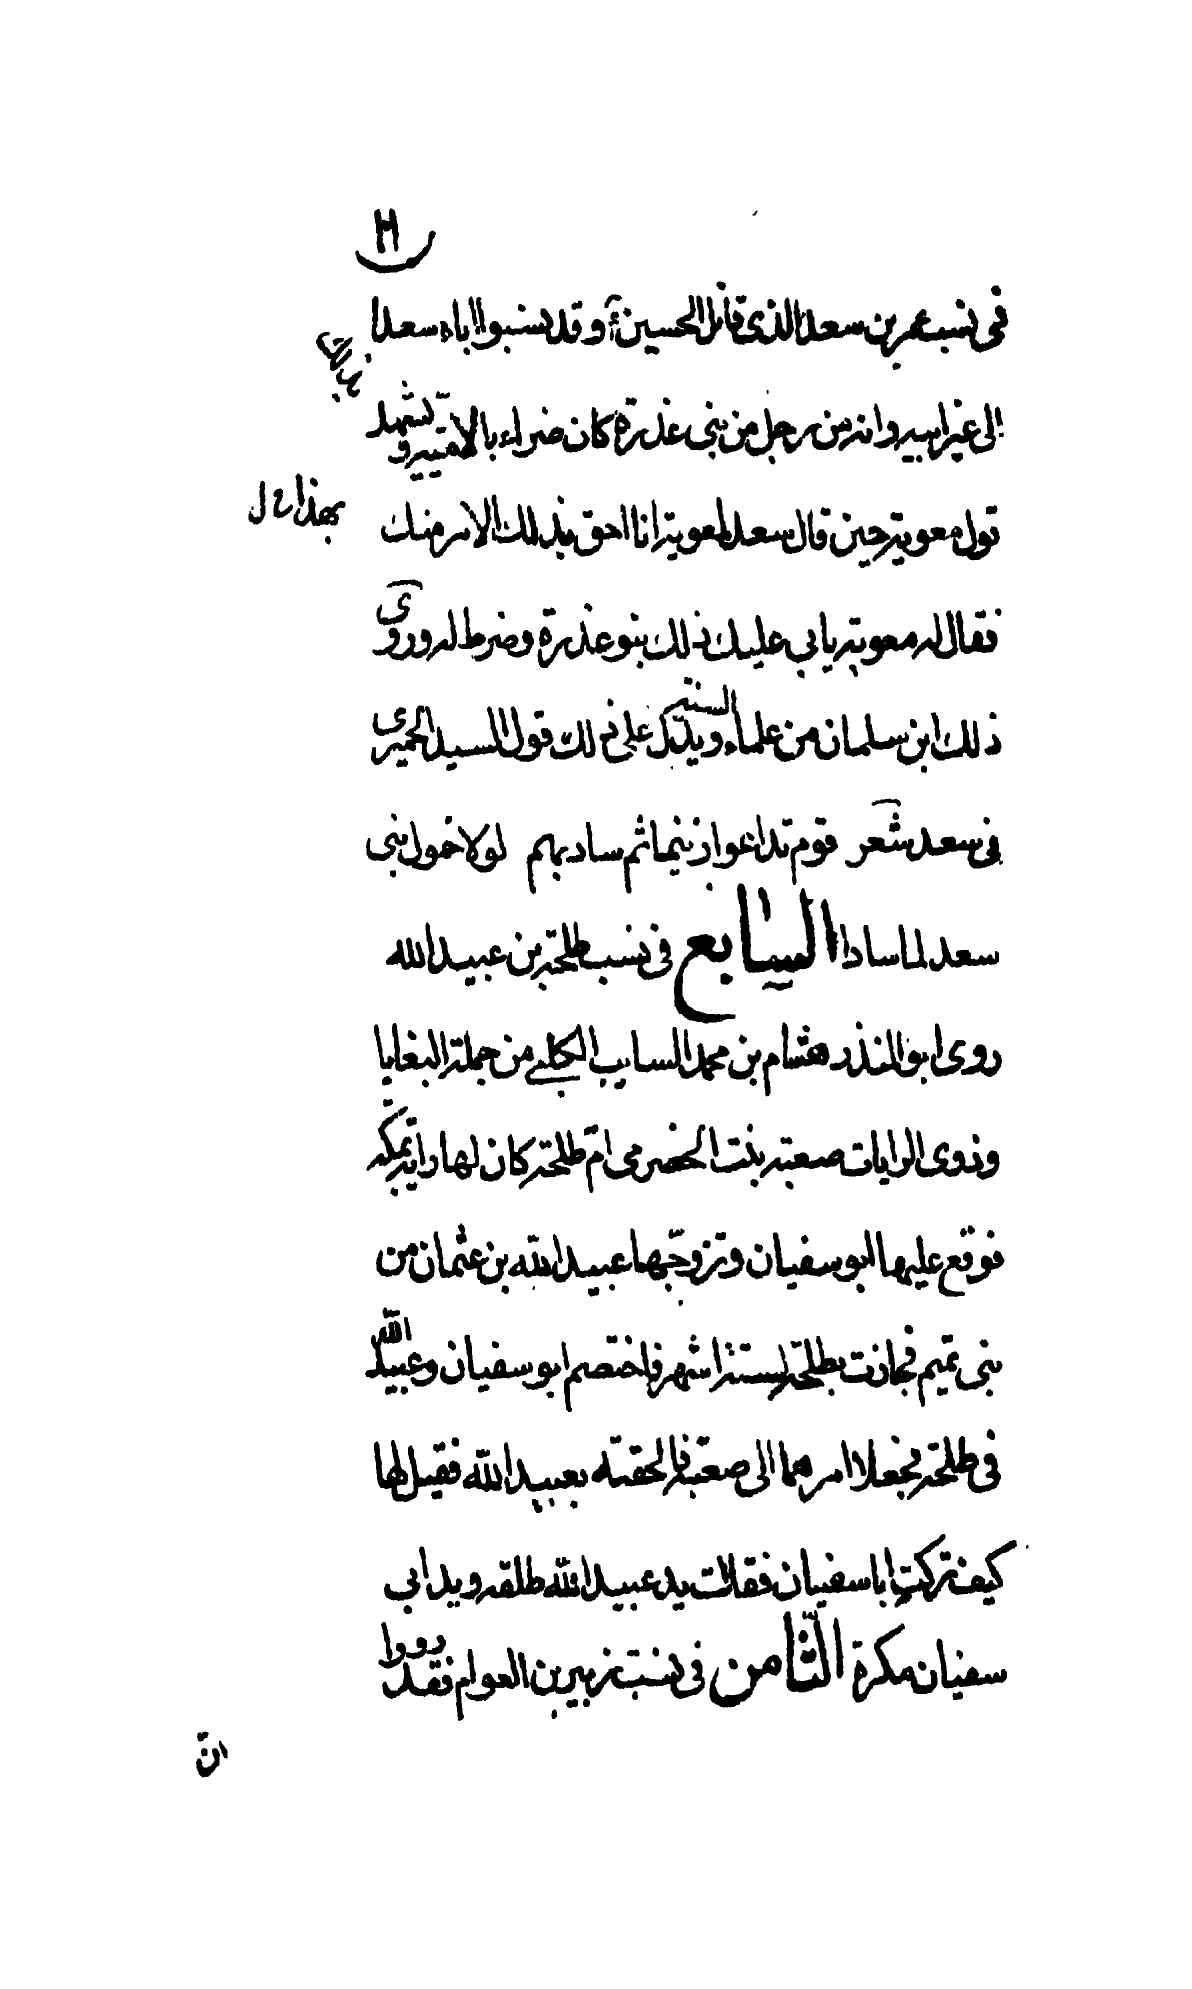 في نسب عمر بن سعد الذي قاتل الحسين ع وقد نسبوا اباه سعدا
الى غير ابيه وانه من رجل من بني عذرة كان ضراء بالامته ويشهد
بهذا
قول معوية حين قال سعد لمعوية انا احق بذلك الامر منك
فقال له معوية يابي عليك ذلك بنو عذرة وضرط له وروى
ذلك ابن سلمان من علماء السنة ويدل على ذلك قول السيد الحميري
في سعد شعر قوم تداعوا زنيما ثم سادبهم لولا خمول بني
سعد لما سادا السابع في نسب طلحة بن عبيد الله
روى ابو المنذر هشام بن محمد السايب الكلبي من جملة البغايا
وذوى الرايات صعبة بنت الحضرمي ام طلحة كان لها راية بمكة
فوقع عليها ابو سفيان وتزوجها عبيد الله بن عثمان من
بني تميم فجاءت بطلحة لستة اشهر فاختصم ابو سفيان وعبيد الله
في طلحة فجعلا امرهما الى صعبة فالحقته بعبيد الله فقيل لها
كيف تركت ابا سفيان فقالت يد عبيد الله طلقه ويد ابي
سفيان مكرة الثامن في نسب زبير بن العوام فقد رووا
ان